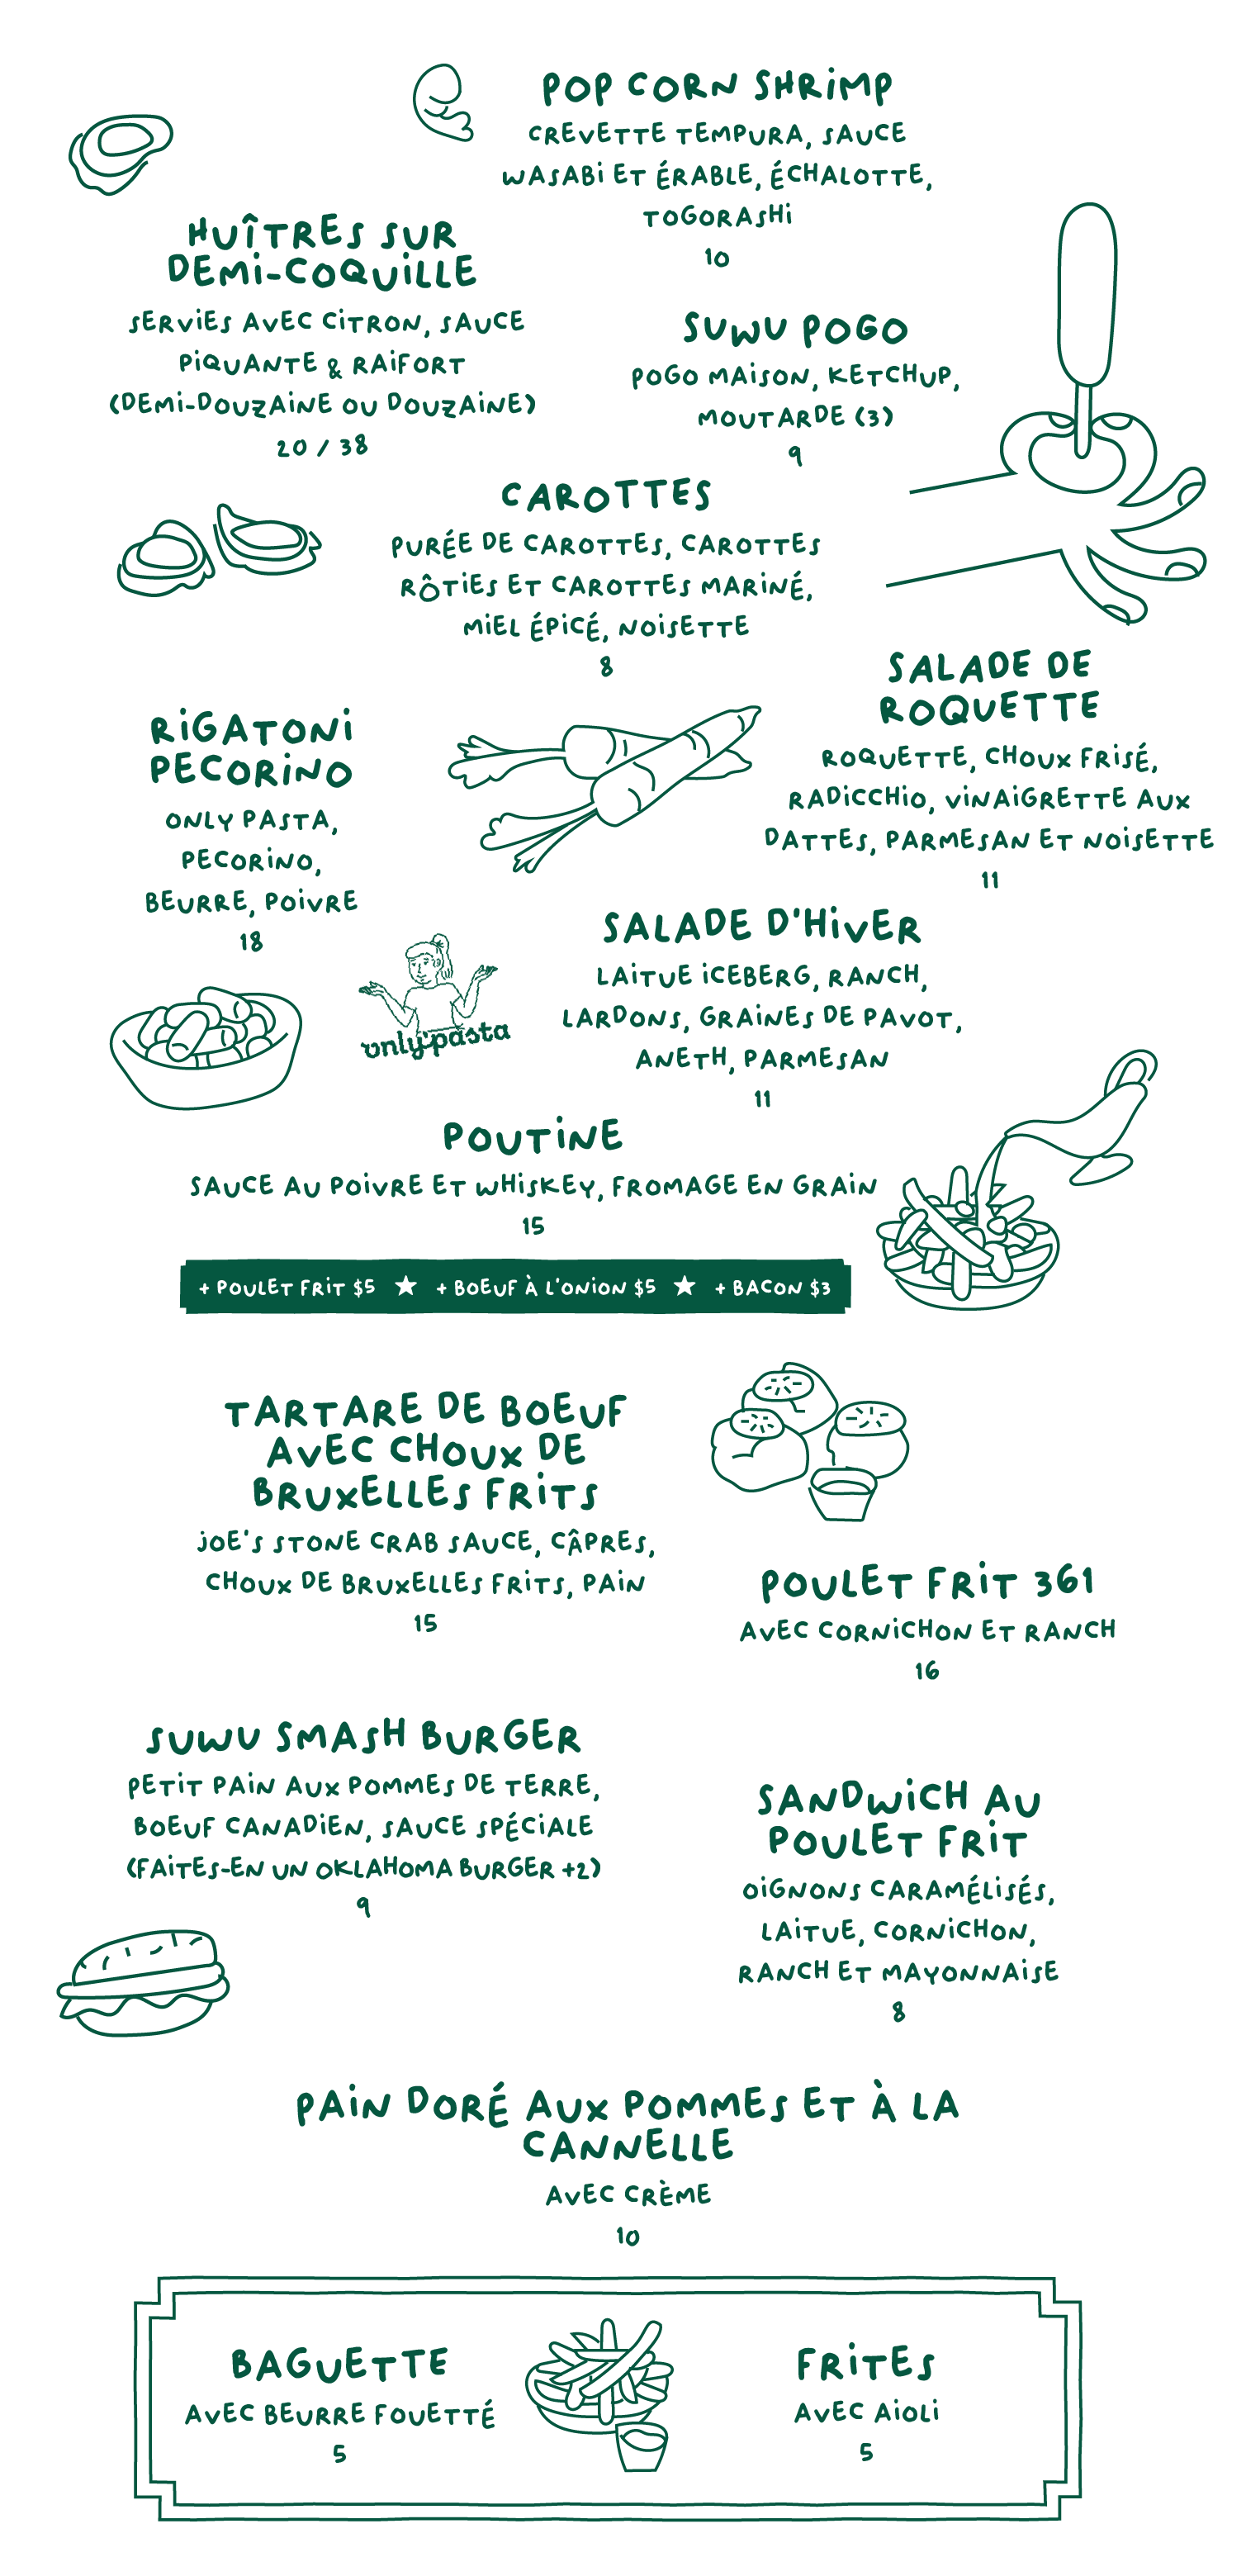 POP CORN SHRIMP
CREVETTE TEMPURA, SAUCE
WASABI ET ÉRABLE, ÉCHALOTTE,
TOGORASHI
10
HUÎTRES SUR
DEMI-COQUILLE
SERVIES AVEC CITRON, SAUCE
PIQUANTE & RAIFORT
(DEMI-DOUZAINE OU DOUZAINE)
20 / 38
SUWU POGO
POGO MAISON, KETCHUP,
MOUTARDE (3)
9
CAROTTES
PURÉE DE CAROTTES, CAROTTES
RÔTIES ET CAROTTES MARINÉ,
MIEL ÉPICÉ, NOISETTE
8
SALADE DE
ROQUETTE
ROQUETTE, CHOUX FRISÉ,
RADICCHIO, VINAIGRETTE AUX
DATTES, PARMESAN ET NOISETTE
11
RIGATONI
PECORINO
ONLY PASTA,
PECORINO,
BEURRE, POIVRE
18
only pasta
SALADE D'HIVER
LAITUE ICEBERG, RANCH,
LARDONS, GRAINES DE PAVOT,
ANETH, PARMESAN
11
POUTINE
SAUCE AU POIVRE ET WHISKEY, FROMAGE EN GRAIN
15
+ POULET FRIT $5 ★ + BOEUF À L'ONION $5 ★ + BACON $3
TARTARE DE BOEUF
AVEC CHOUX DE
BRUXELLES FRITS
JOE'S STONE CRAB SAUCE, CÂPRES,
CHOUX DE BRUXELLES FRITS, PAIN
15
POULET FRIT 361
AVEC CORNICHON ET RANCH
16
SUWU SMASH BURGER
PETIT PAIN AUX POMMES DE TERRE,
BOEUF CANADIEN, SAUCE SPÉCIALE
(FAITES-EN UN OKLAHOMA BURGER +2)
9
SANDWICH AU
POULET FRIT
OIGNONS CARAMÉLISÉS,
LAITUE, CORNICHON,
RANCH ET MAYONNAISE
8
PAIN DORÉ AUX POMMES ET À LA
CANNELLE
AVEC CRÈME
10
BAGUETTE
AVEC BEURRE FOUETTÉ
5
FRITES
AVEC AIOLI
5